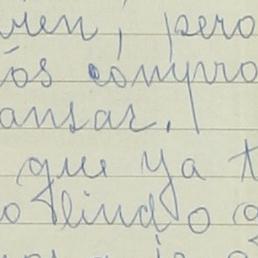 ren, pero
ós compro
ansar.
que ya t
o lindo